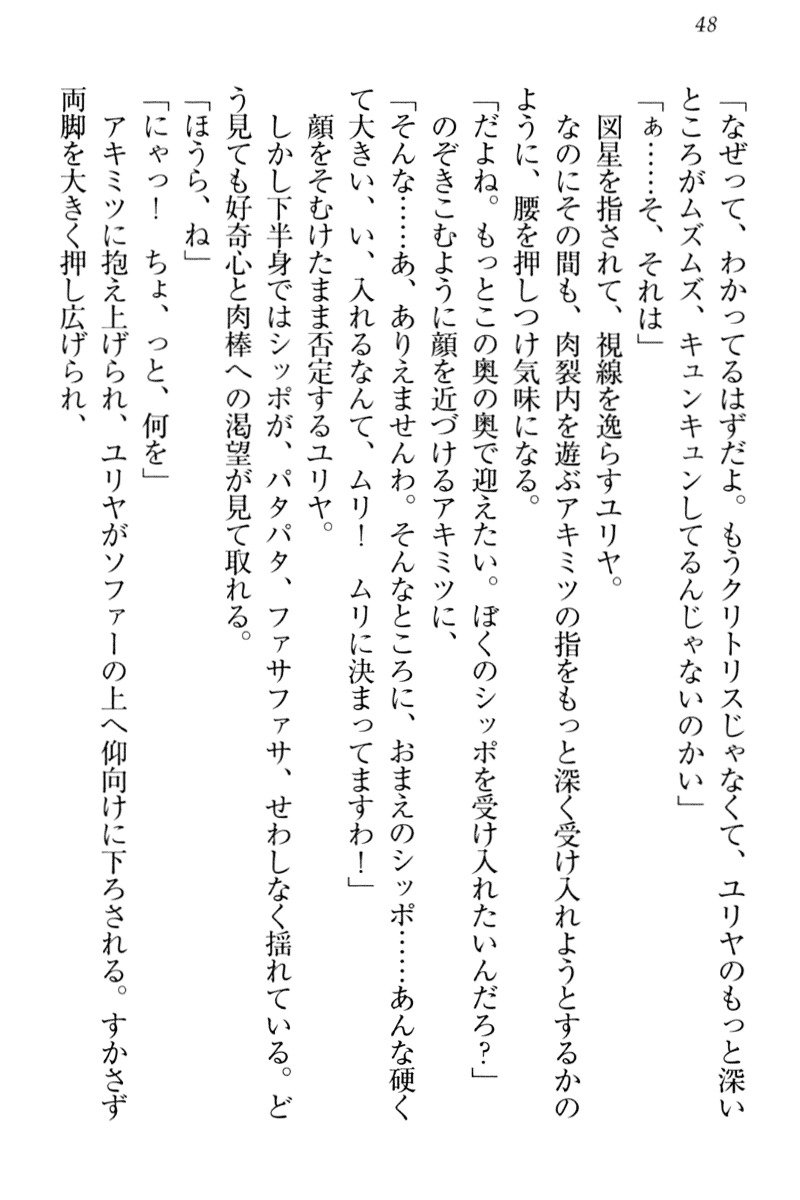 48
「なぜって、わかってるはずだよ。もうクリトリスじゃなくて、ユリヤのもっと深い
ところがムズムズ、キュンキュンしてるんじゃないのかい」
「ぁ……そ、それは」
図星を指されて、視線を逸らすユリヤ。
なのにその間も、肉裂内を遊ぶアキミツの指をもっと深く受け入れようとするかの
ように、腰を押しつけ気味になる。
「だよね。もっとこの奥の奥で迎えたい。ぼくのシッポを受け入れたいんだろ？」
のぞきこむように顔を近づけるアキミツに、
「そんな……あ、ありえませんわ。そんなところに、おまえのシッポ……あんな硬く
て大きい、い、入れるなんて、ムリ！　ムリに決まってますわ！」
顔をそむけたまま否定するユリヤ。
しかし下半身ではシッポが、パタパタ、ファサファサ、せわしなく揺れている。ど
う見ても好奇心と肉棒への渇望が見て取れる。
「ほうら、ね」
「にゃっ！　ちょ、っと、何を」
アキミツに抱え上げられ、ユリヤがソファーの上へ仰向けに下ろされる。すかさず
両脚を大きく押し広げられ、